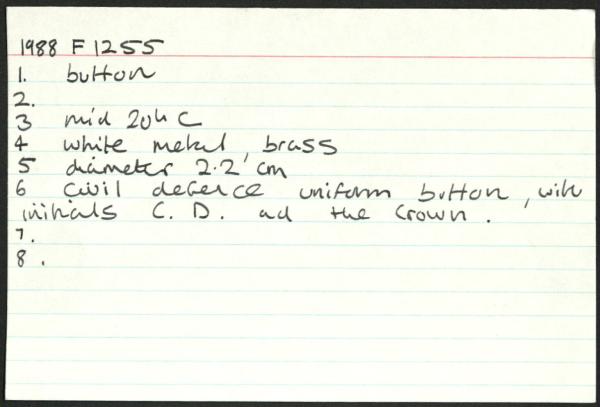 1988 F 1255
1. button
2.
3 mid 20th C
4 white metal, brass
5 diameter 2.2 cm
6 Civil defence uniform button, with
initials C. D. and the Crown.
7.
8.